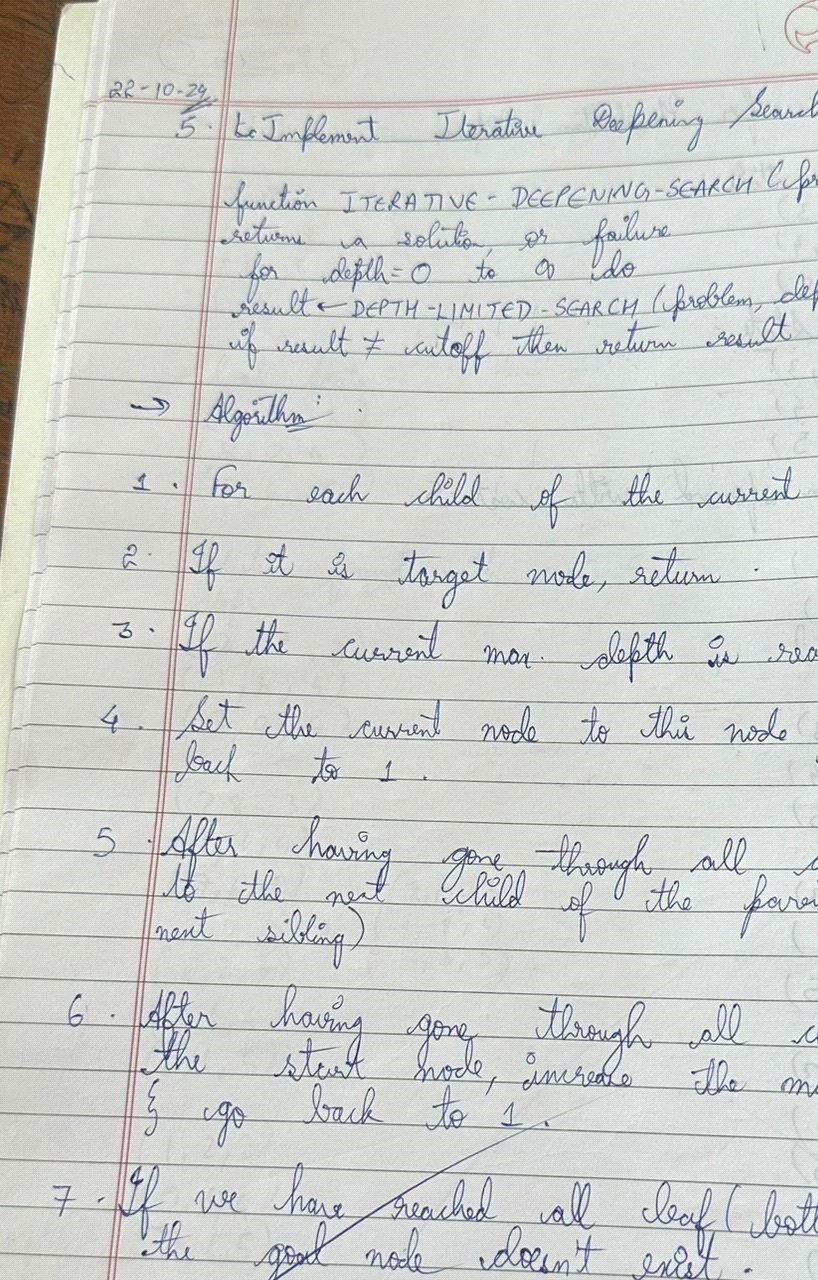 22-10-24
5. to Implement Iterative Deepening Search
function ITERATIVE-DEEPENING-SEARCH (pr
returns a solution, or failure
for depth=0 to ∞ do
result ← DEPTH-LIMITED-SEARCH (problem, dep
if result ≠ cutoff then return result
→ Algorithm:
1. For each child of the current
2. If it is target node, return.
3. If the current max. depth is rea
4. Set the current node to this node
back to 1.
5. After having gone through all c
to the next child of the pare
next sibling)
6. After having gone through all c
the start node, increase the m
& go back to 1.
7. If we have reached all leaf (bott
the goal node doesn't exist.